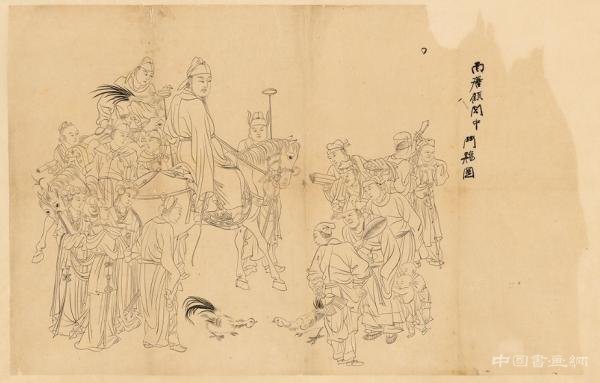 南唐顧閎中鬥雞圖
中國書畫網